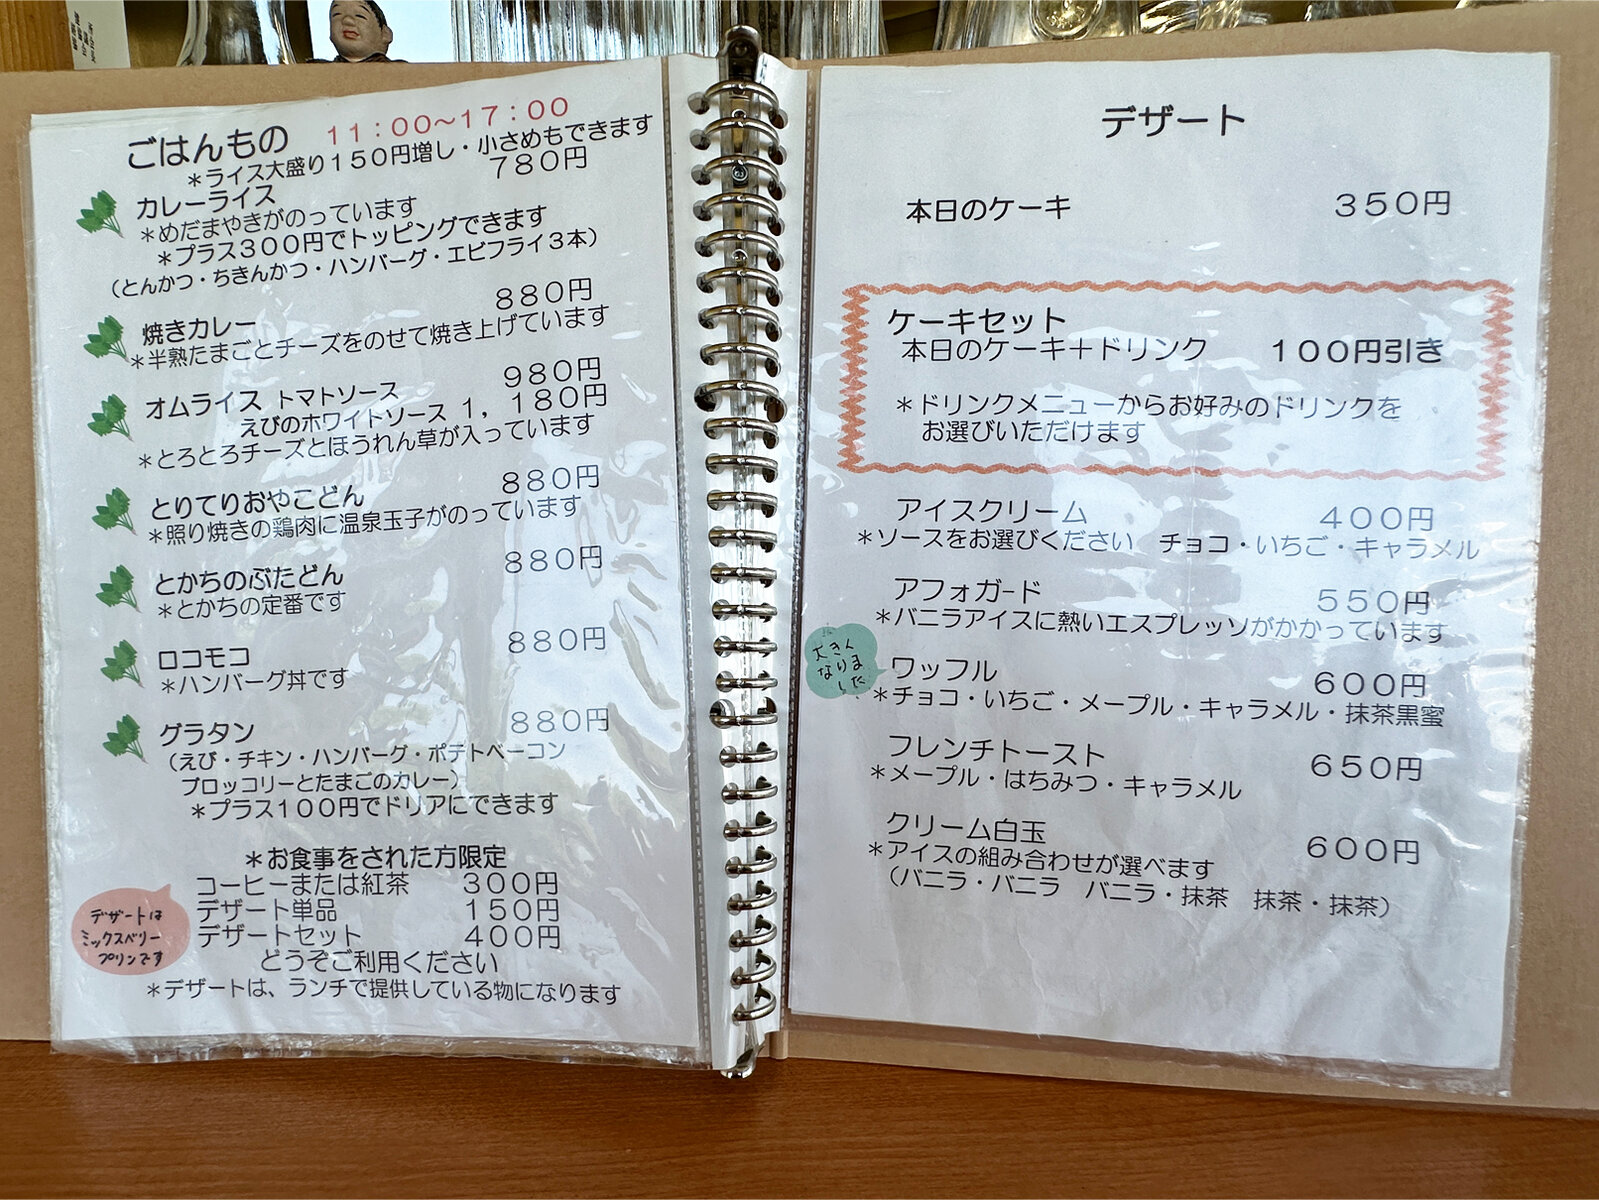 ごはんもの 11:00~17:00
*ライス大盛り150円増し・小さめもできます
カレーライス 780円
*めだまやきがのっています
*プラス300円でトッピングできます
(とんかつ・ちきんかつ・ハンバーグ・エビフライ3本)
焼きカレー 880円
*半熟たまごとチーズをのせて焼き上げています
オムライス トマトソース 980円
えびのホワイトソース 1,180円
*とろとろチーズとほうれん草が入っています
とりてりおやこどん 880円
*照り焼きの鶏肉に温泉玉子がのっています
とかちのぶたどん 880円
*とかちの定番です
ロコモコ 880円
*ハンバーグ丼です
グラタン 880円
(えび・チキン・ハンバーグ・ポテトベーコン
ブロッコリーとたまごのカレー)
*プラス100円でドリアにできます
*お食事をされた方限定
コーヒーまたは紅茶 300円
デザート単品 150円
デザートセット 400円
どうぞご利用ください
*デザートは、ランチで提供している物になります
デザートは
ミックスベリー
プリンです
デザート
本日のケーキ 350円
ケーキセット
本日のケーキ+ドリンク 100円引き
*ドリンクメニューからお好みのドリンクを
お選びいただけます
アイスクリーム 400円
*ソースをお選びください チョコ・いちご・キャラメル
アフォガード 550円
*バニラアイスに熱いエスプレッソがかかっています
大きく
なりま
した
ワッフル 600円
*チョコ・いちご・メープル・キャラメル・抹茶黒蜜
フレンチトースト 650円
*メープル・はちみつ・キャラメル
クリーム白玉 600円
*アイスの組み合わせが選べます
(バニラ・バニラ バニラ・抹茶 抹茶・抹茶)